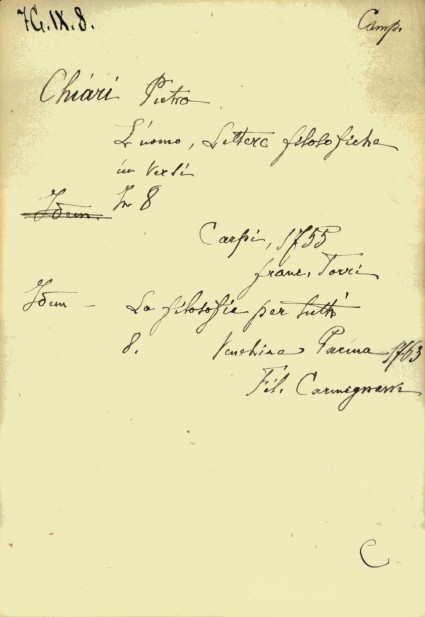 7G.IX.8.
Camp.
Chiari Pietro
L'uomo, Lettere filosofiche
in versi
In 8
Idem
Carpi, 1755
franc. Torri
Idem - La filosofia per tutti
8. Parma 1763
Fil. Carmignani
C